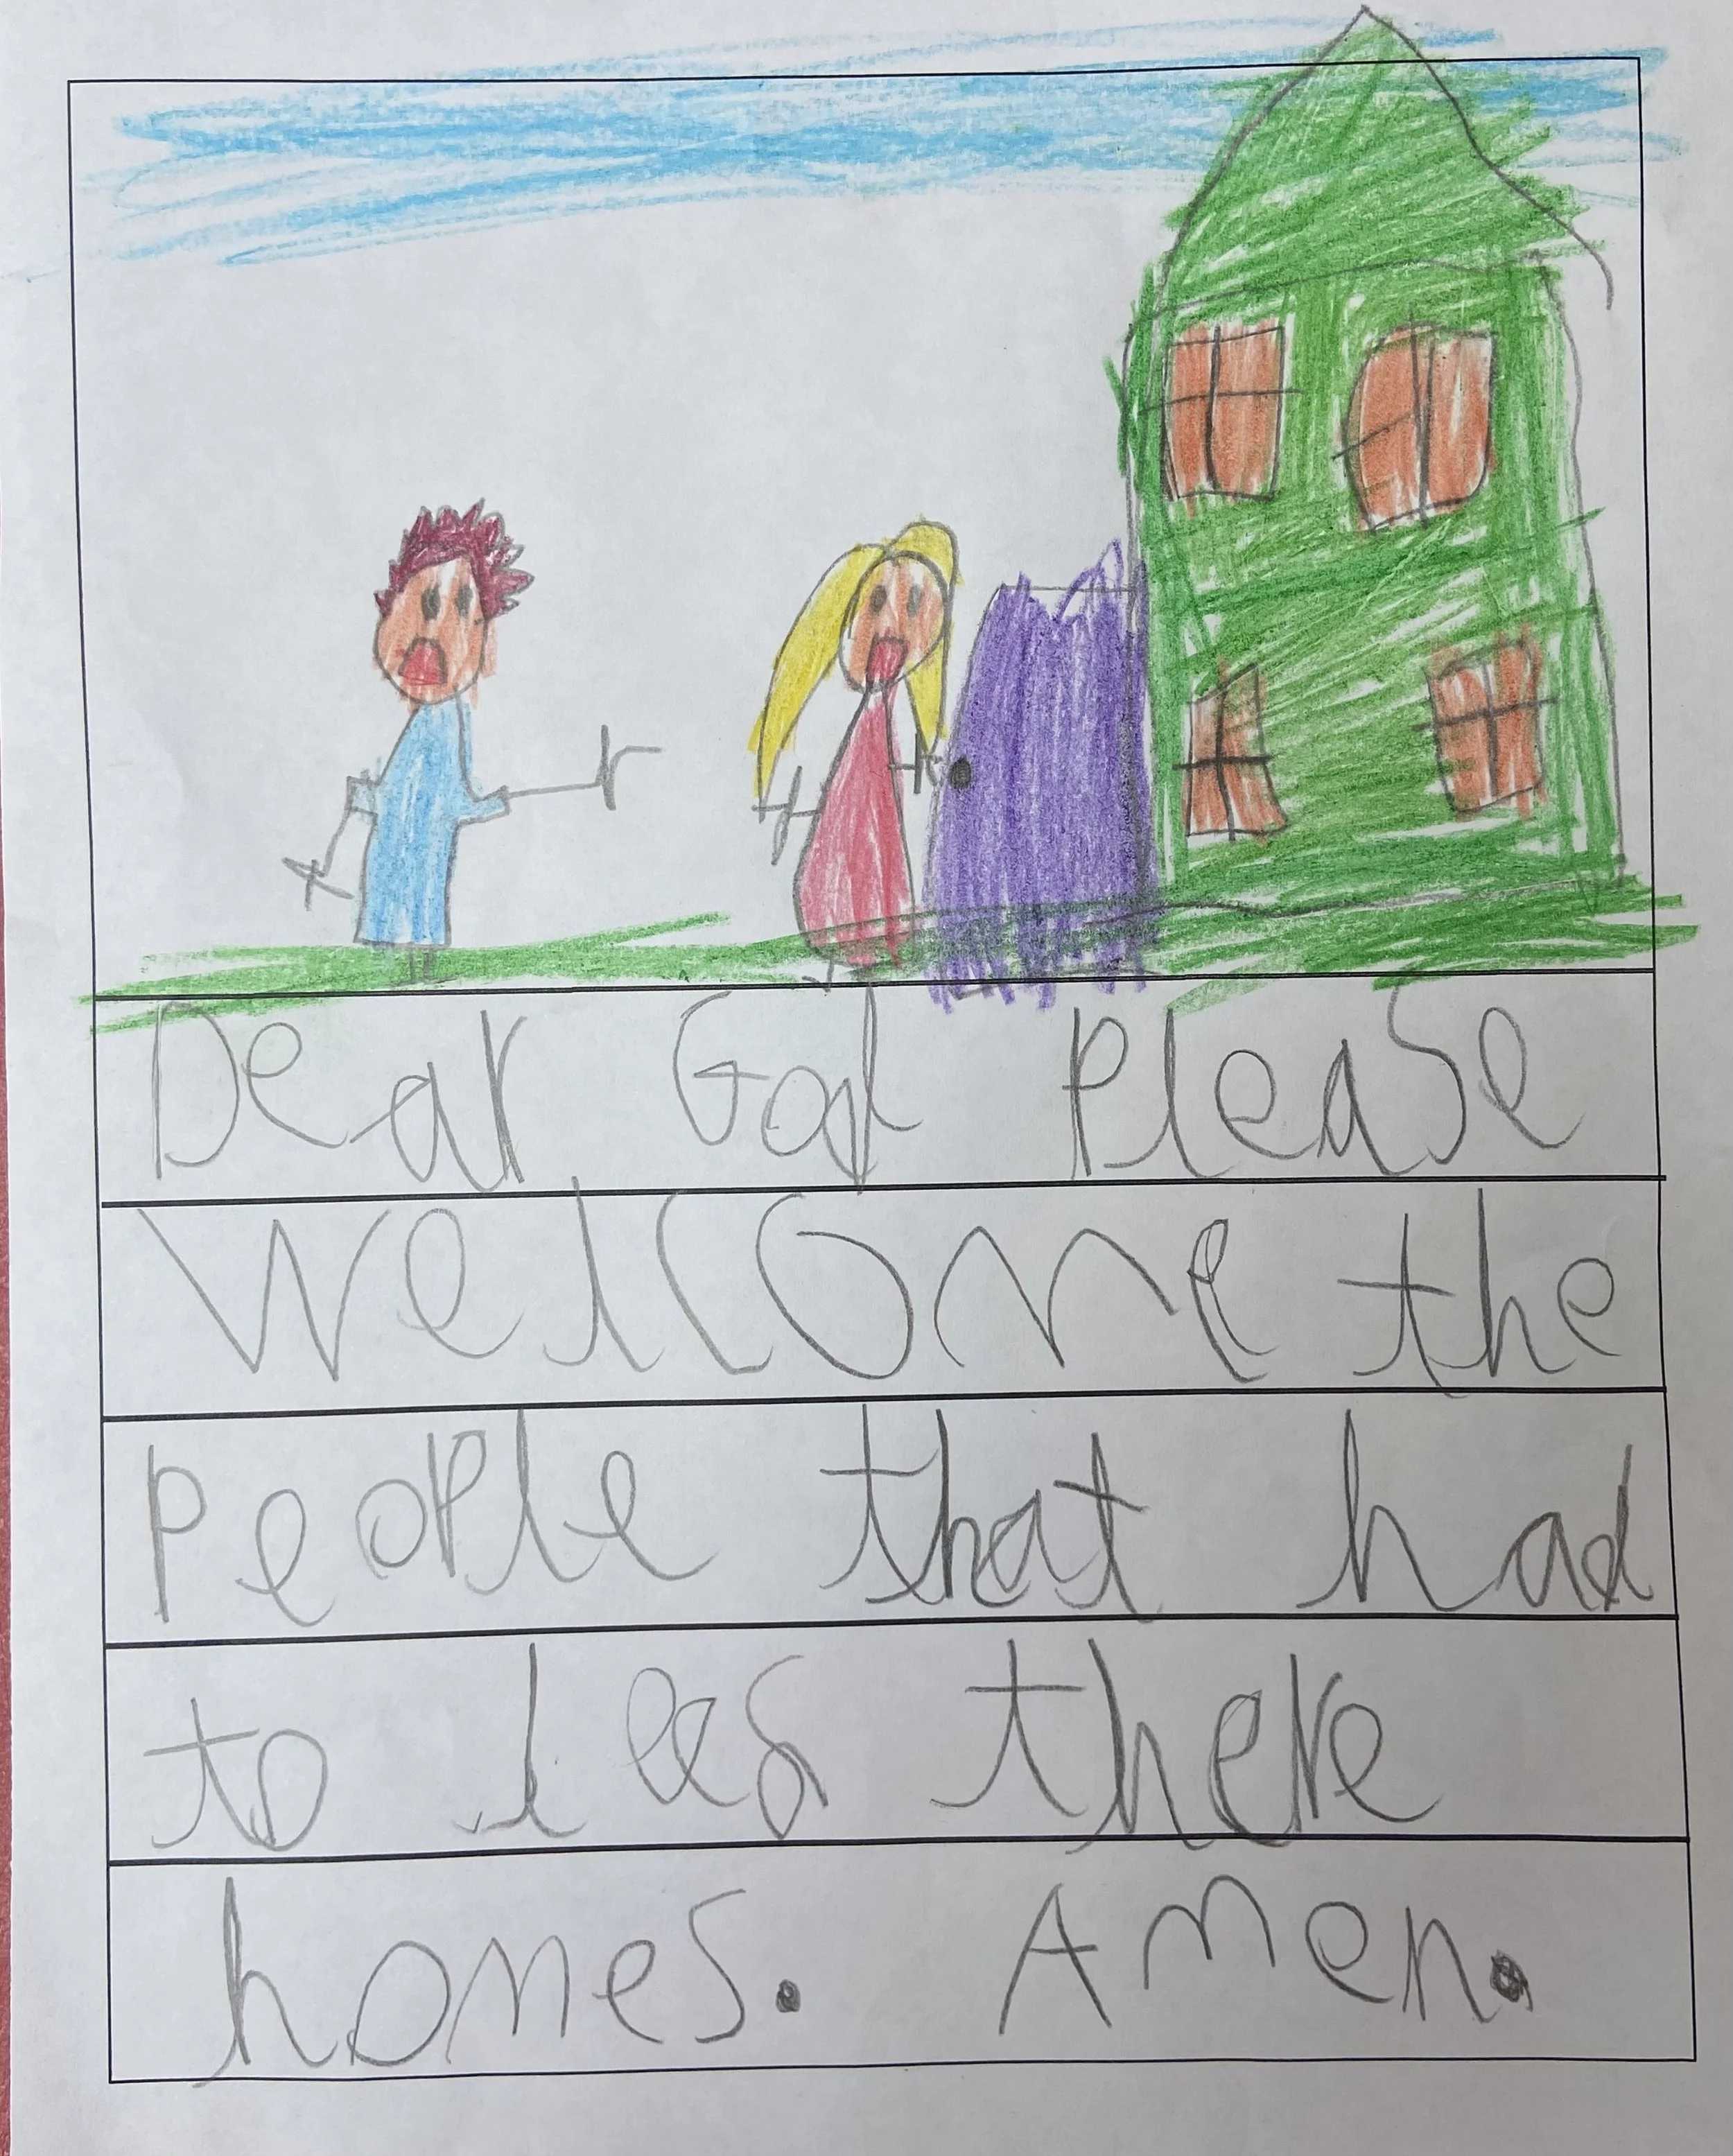 Dear God Please
Welcome the
People that had
to leas there
homes. Amen.